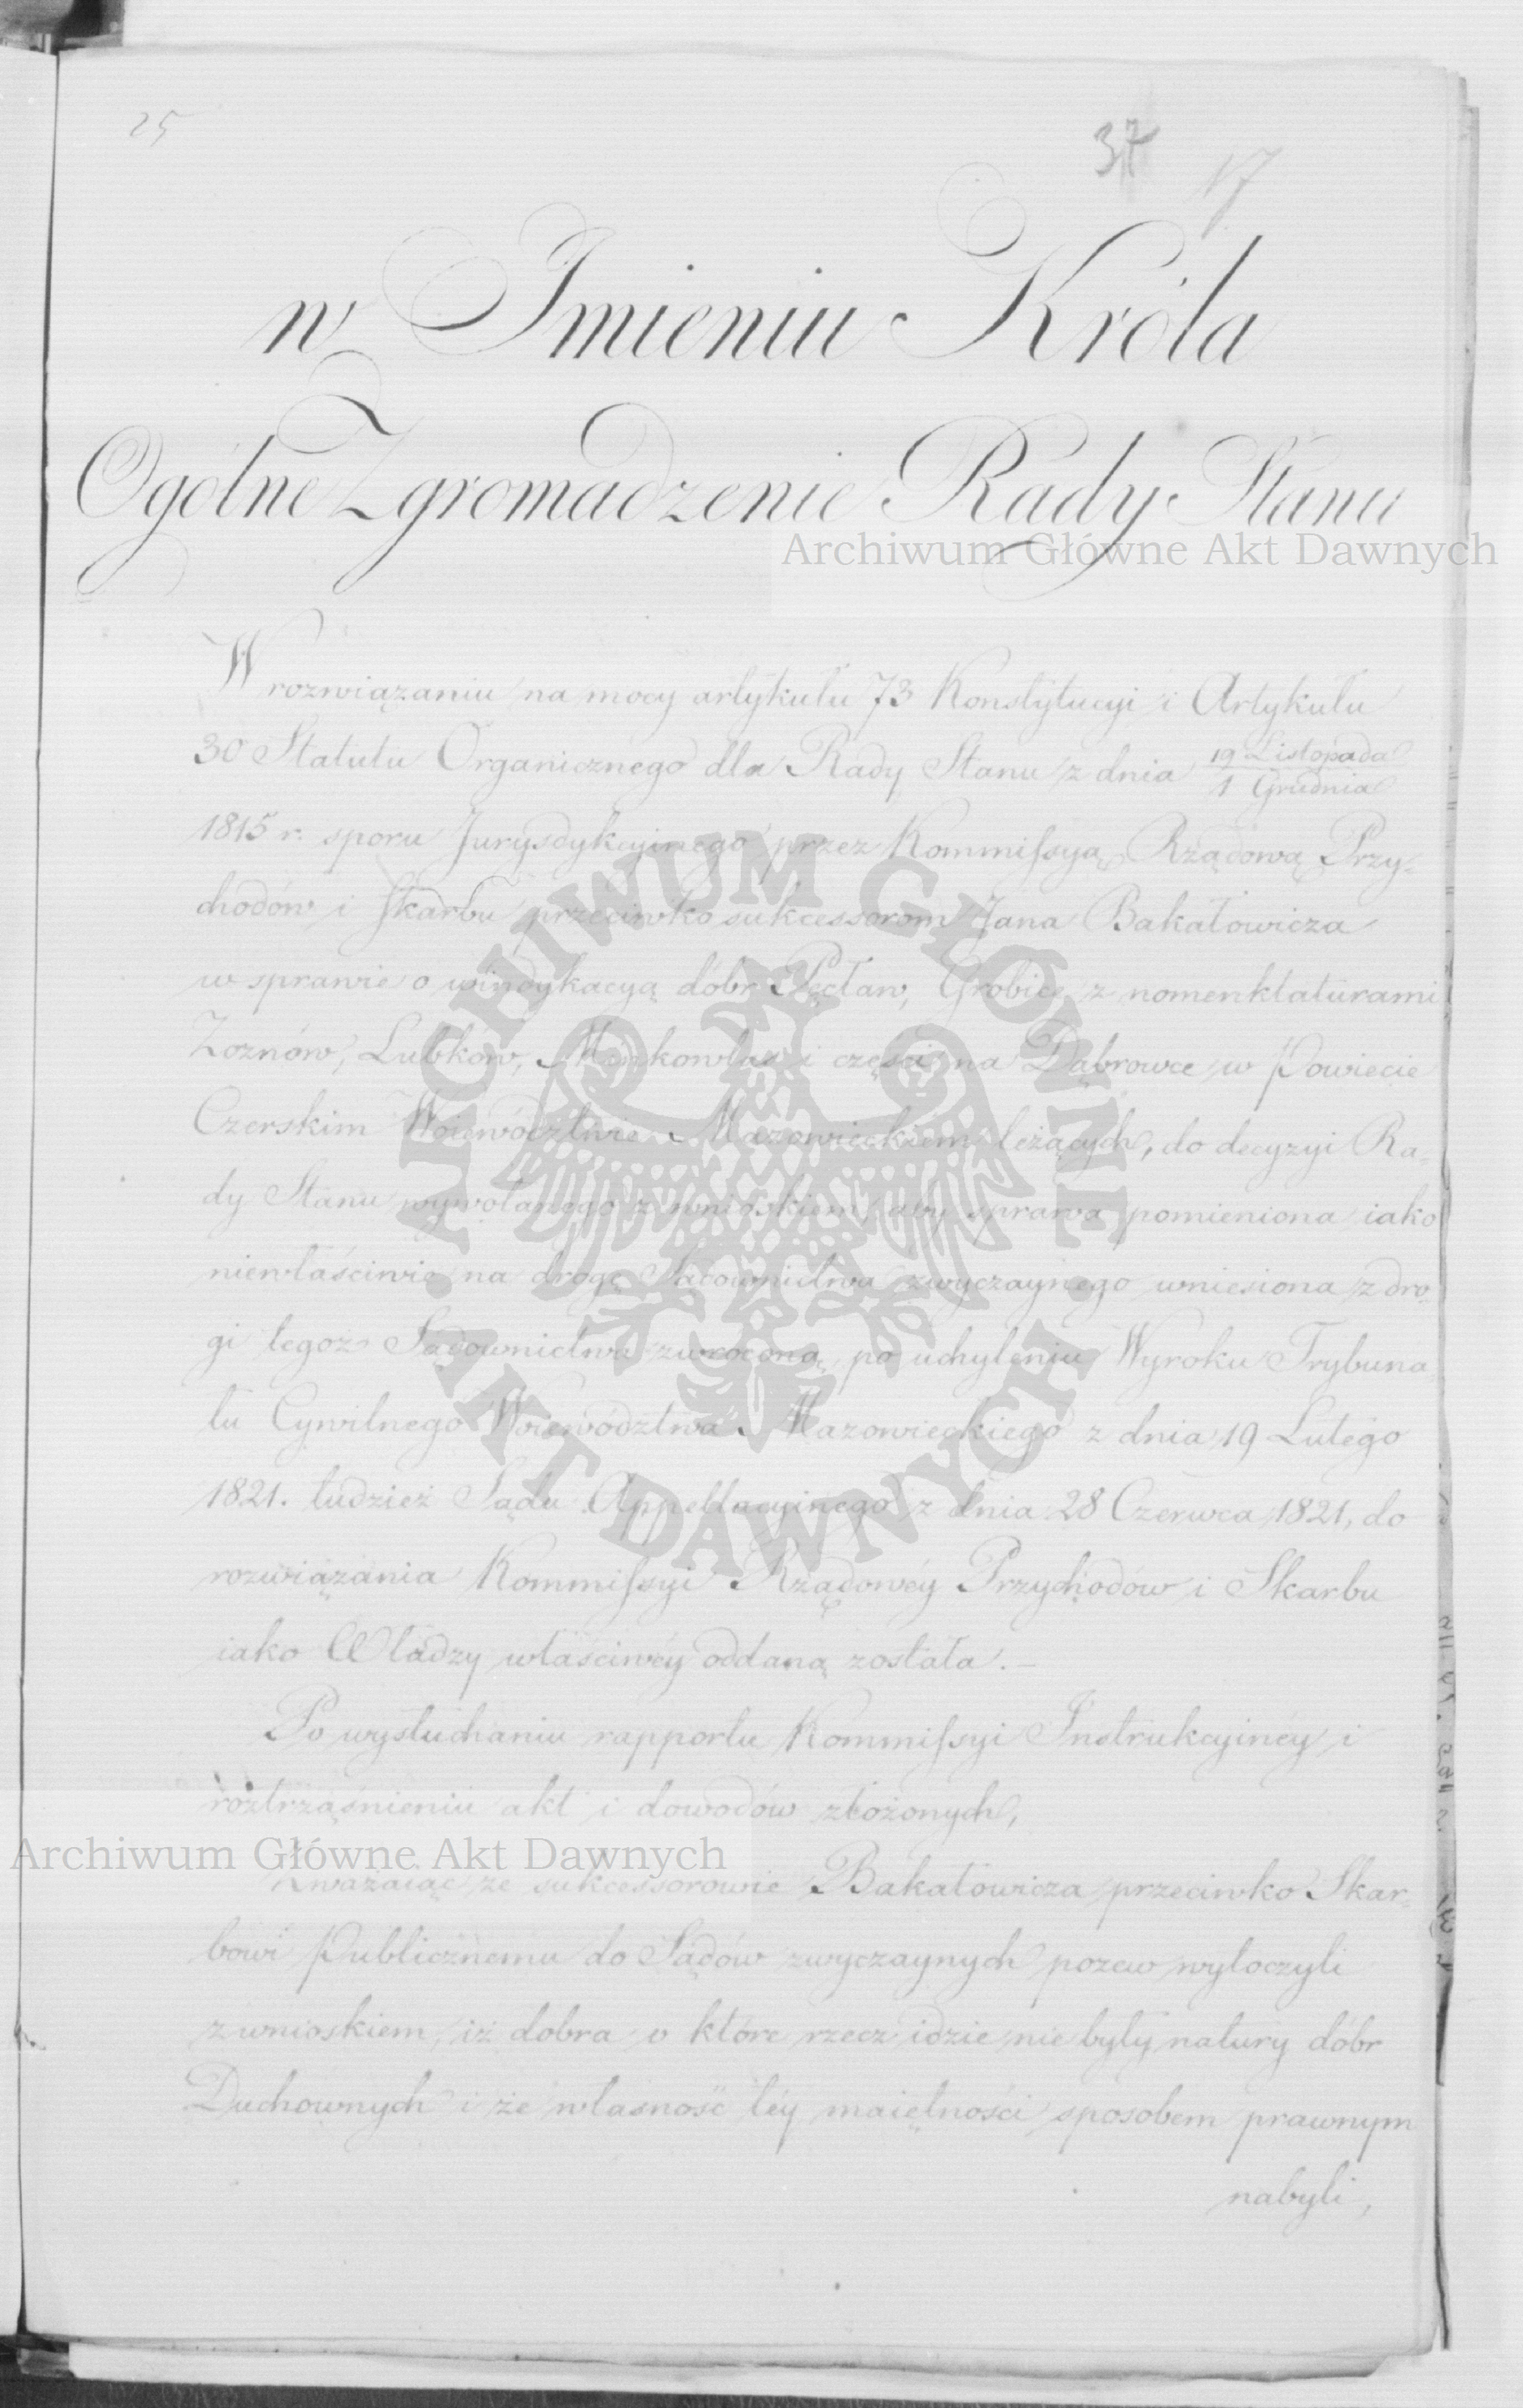 25
37 17
w Imieniu Króla
Ogólne Zgromadzenie Rady Stanu
Archiwum Główne Akt Dawnych
W rozwiązaniu na mocy artykułu 73 Konstytucyi i Artykułu
30 Statutu Organicznego dla Rady Stanu z dnia 19 Listopada / 1 Grudnia
1815 r. sporu Jurysdykcyinego przez Kommissyą Rządową Przy-
chodów i Skarbu przeciwko sukcessorom Jana Bakałowicza
w sprawie o windykacyą dóbr Pęcław, Grobice z nomenklaturami
Zoznów, Lubków, i części na Dąbrowce w Powiecie
Czerskim Woiewództwie Mazowieckiem leżących, do decyzyi Ra-
dy Stanu wywołanego z wnioskiem, aby sprawa pomieniona iako
niewłaściwie na drogę Sądownictwa zwyczaynego wniesiona z dro-
gi tegoż Sądownictwa zwróconą, po uchyleniu Wyroku Trybuna
łu Cywilnego Woiewództwa Mazowieckiego z dnia 19 Lutego
1821. tudzież Sądu Appellacyinego z dnia 28 Czerwca 1821, do
rozwiązania Kommissyi Rządowéy Przychodów i Skarbu
iako Władzy właściwéy oddaną została.-
Po wysłuchaniu rapportu Kommissyi Instrukcyinéy i
roztrząśnieniu akt i dowodów złożonych,
Archiwum Główne Akt Dawnych
Zważaiąc że sukcessorowie Bakałowicza przeciwko Skar-
bowi Publicznemu do Sądow zwyczaynych pozew wytoczyli
z wnioskiem, iż dobra o które rzecz idzie nie były natury dóbr
Duchownych i że własność téy maiętności sposobem prawnym
nabyli,
ARCHIWUM GŁÓWNE AKT DAWNYCH